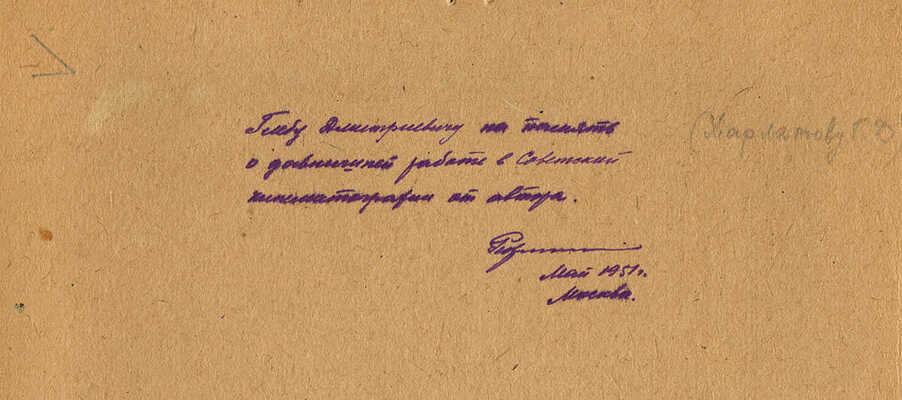 Глебу Дмитриевичу на память
о давнишней работе в Советской
кинематографии от автора.
Май 1951 г.
Москва.
(Харлятову Г. Д